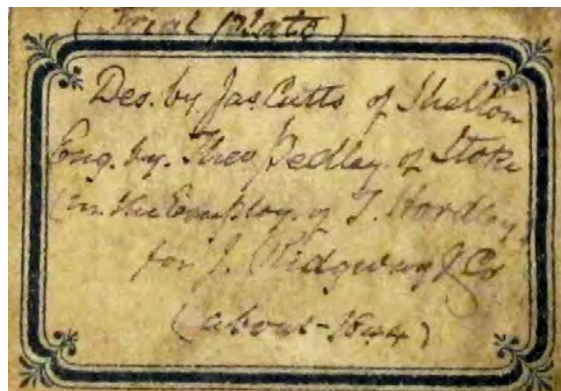 (Trial plate)
Des. by Jas Cutts of Shelton
Eng. by. Theo Pedley. of Stoke
(in the Employ. of T. Hordley.
for J. Ridgway & Co
(about - 1844)